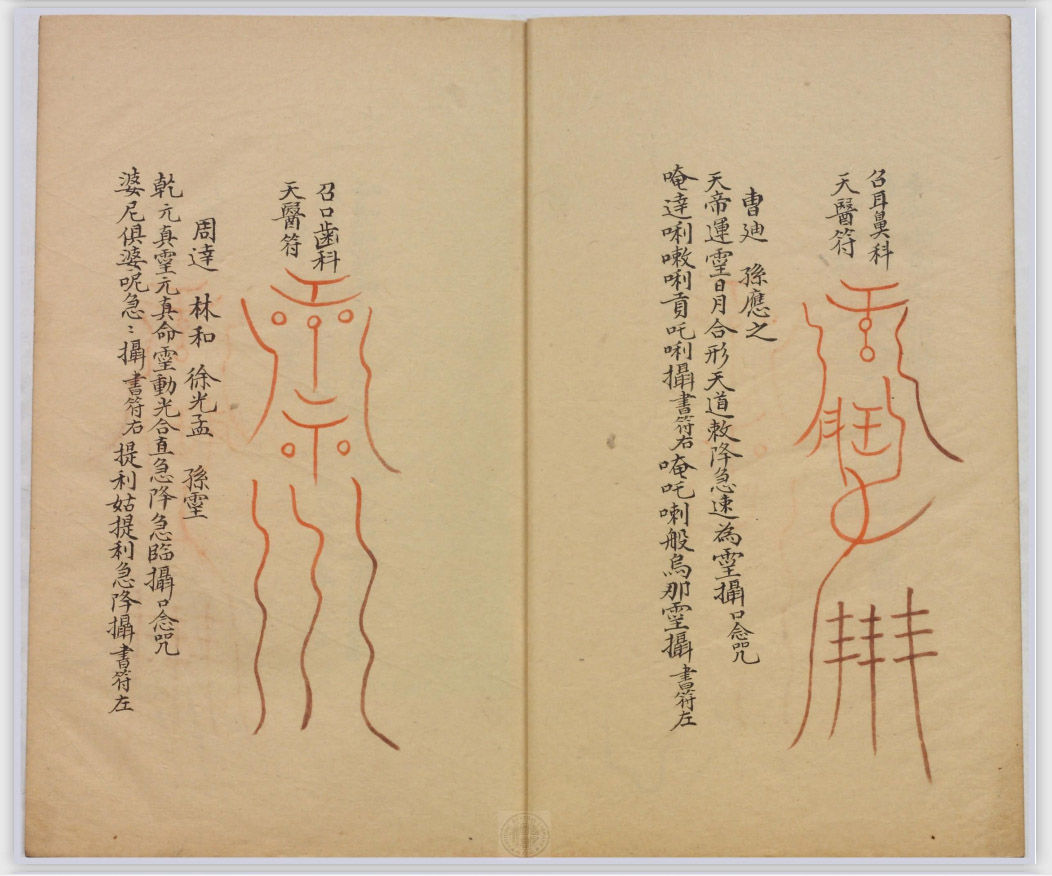 召耳鼻科
天醫符
曹廸 孫應之
天帝運霊日月合形天道敕降急速為霊攝口念咒
唵達唎嗽唎貢吒唎攝書符右唵吒喇般烏那霊攝書符左
召口歯科
天醫符
周達 林和 徐光孟 孫霊
乾元真霊元真命霊動光合直急降急臨攝口念咒
婆尼俱婆呢急〻攝書符右提利姑提利急降攝書符左